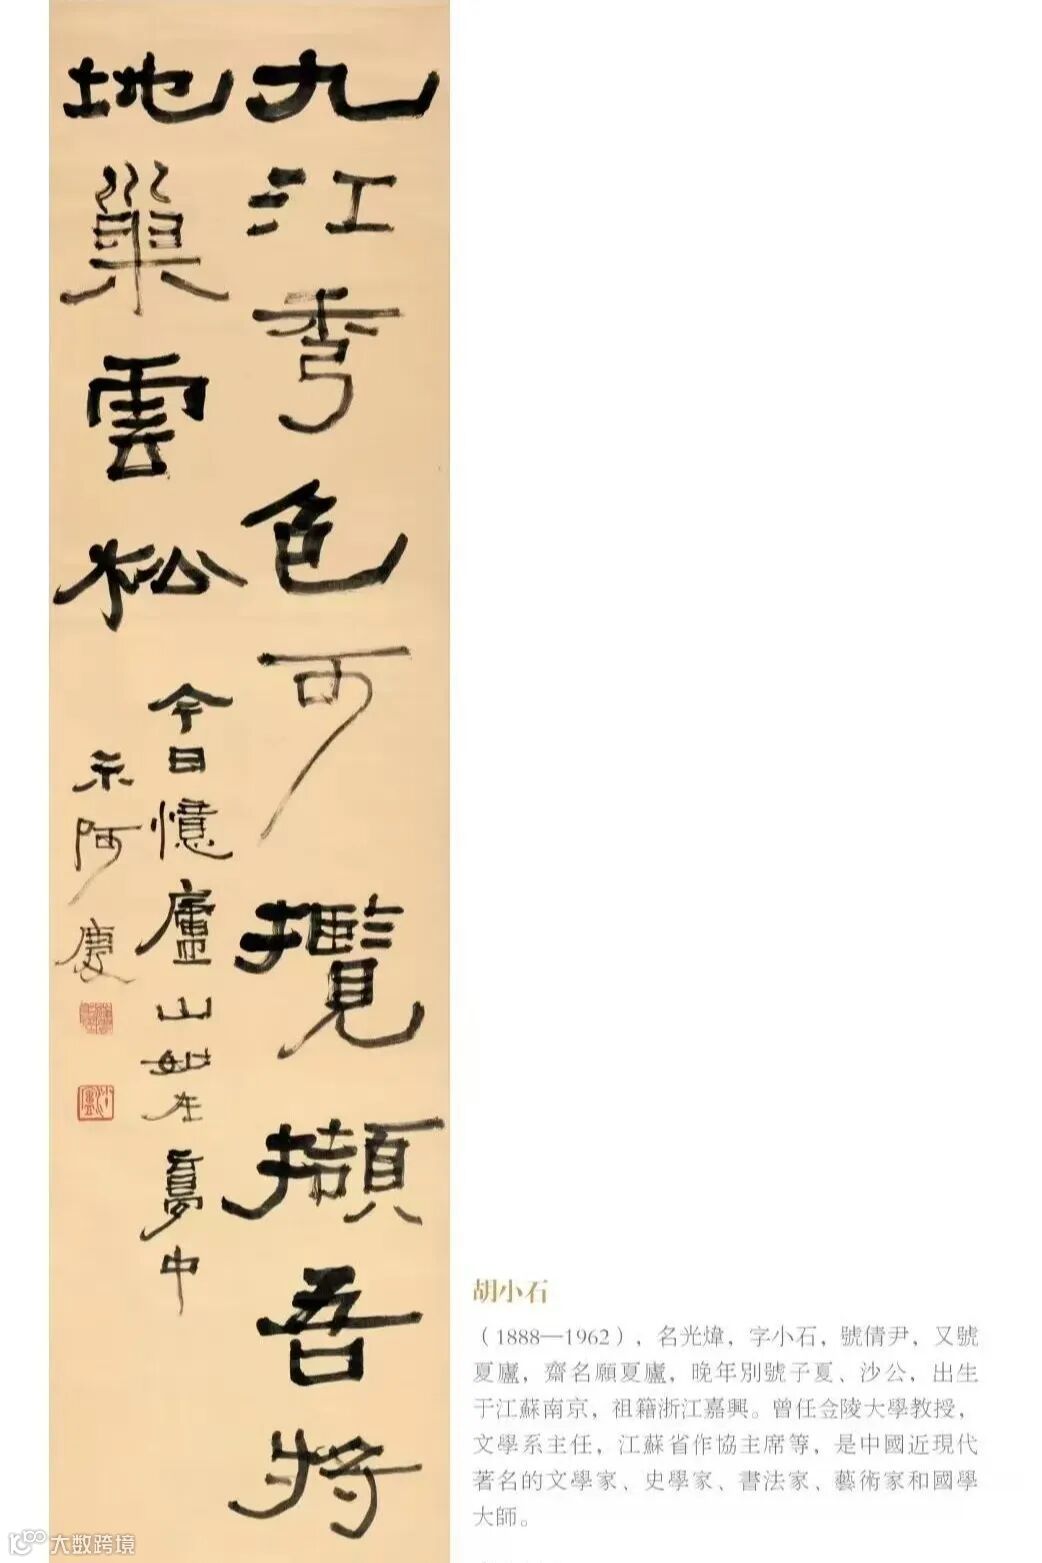 九江秀色可攬擷吾將
地巢雲松
今日憶廬山如在夢中
示阿慶
胡小石
（1888—1962），名光煒，字小石，號倩尹，又號
夏廬，齋名願夏廬，晚年別號子夏、沙公，出生
于江蘇南京，祖籍浙江嘉興。曾任金陵大學教授，
文學系主任，江蘇省作協主席等，是中國近現代
著名的文學家、史學家、書法家、藝術家和國學
大師。
大数跨境